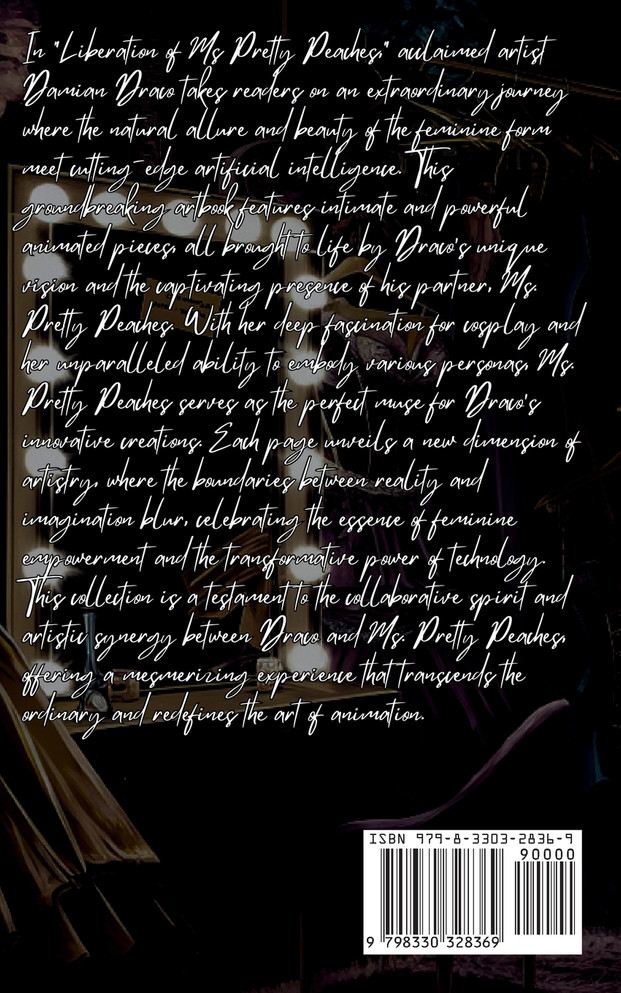 In "Liberation of Ms Pretty Peaches," acclaimed artist
Damian Draco takes readers on an extraordinary journey
where the natural allure and beauty of the feminine form
meet cutting-edge artificial intelligence. This
groundbreaking artbook features intimate and powerful
animated pieces, all brought to life by Draco's unique
vision and the captivating presence of his partner, Ms.
Pretty Peaches. With her deep fascination for cosplay and
her unparalleled ability to embody various personas, Ms.
Pretty Peaches serves as the perfect muse for Draco's
innovative creations. Each page unveils a new dimension of
artistry, where the boundaries between reality and
imagination blur, celebrating the essence of feminine
empowerment and the transformative power of technology.
This collection is a testament to the collaborative spirit and
artistic synergy between Draco and Ms. Pretty Peaches,
offering a mesmerizing experience that transcends the
ordinary and redefines the art of animation.
ISBN 979-8-3303-2836-9
90000
9 798330 328369